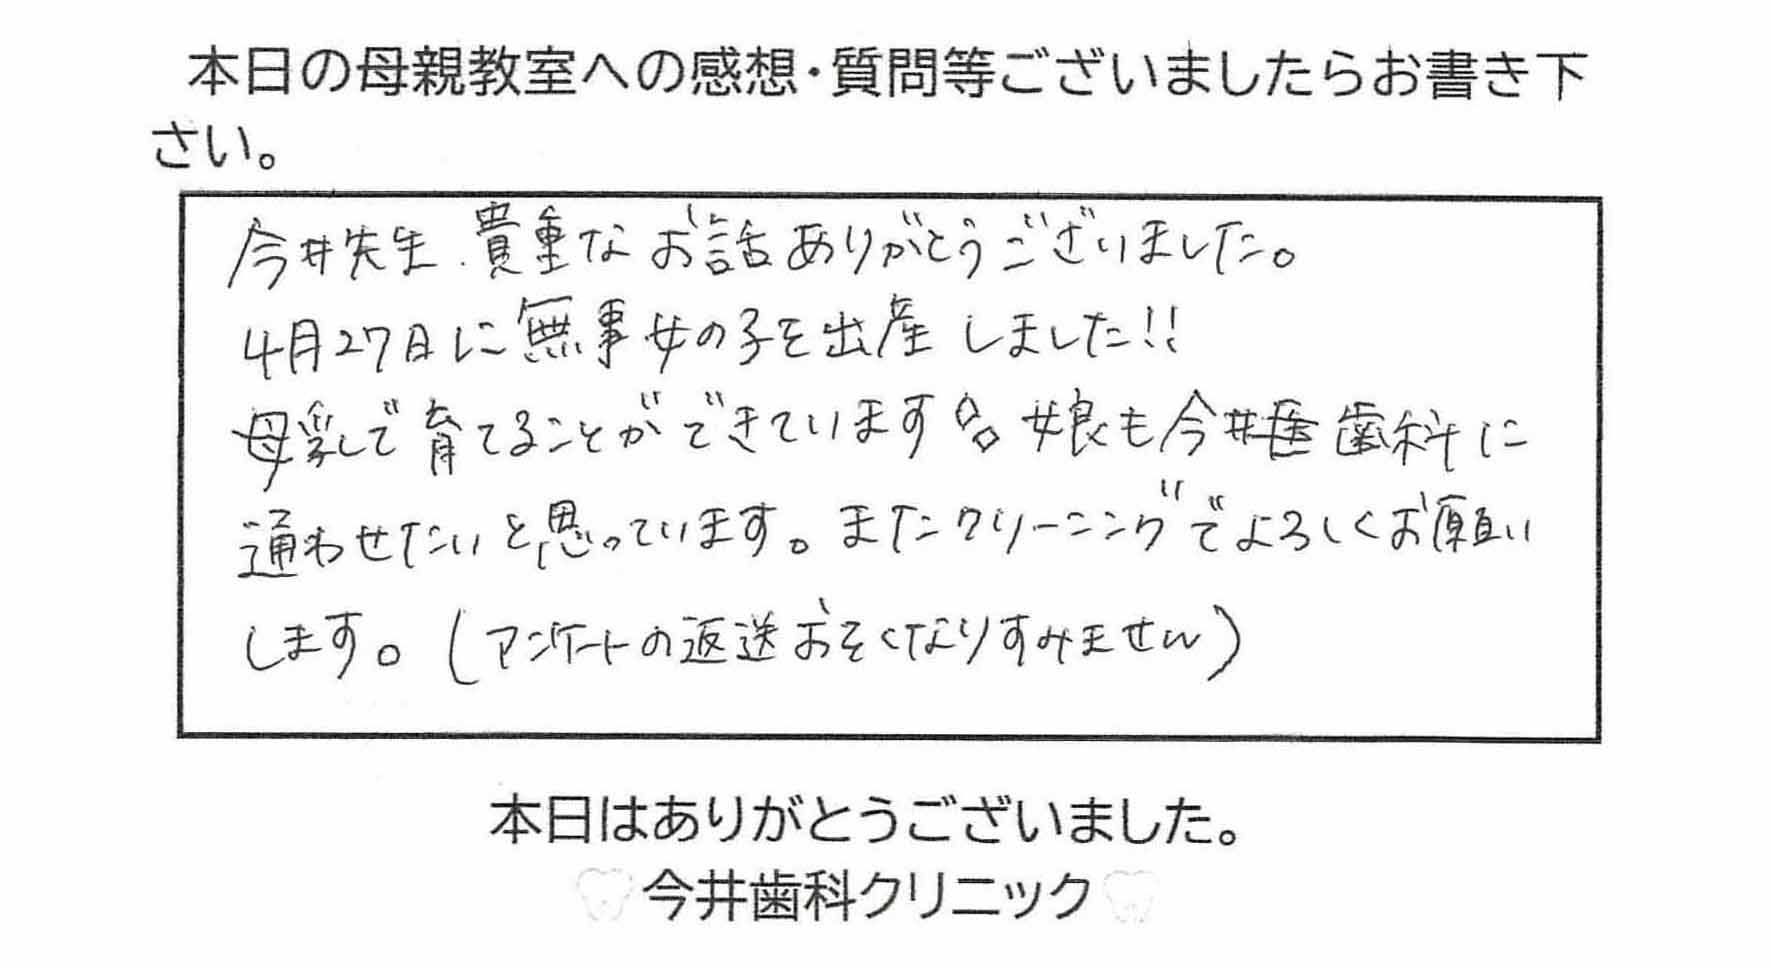 本日の母親教室への感想・質問等ございましたらお書き下
さい。
今井先生.貴重なお話ありがとうございました。
4月27日に無事女の子を出産しました!!
母乳で育てることができています 娘も今井歯科に
通わせたいと思っています。またクリーニングでよろしくお願い
します。(アンケートの返送おそくなりすみません)
本日はありがとうございました。
今井歯科クリニック